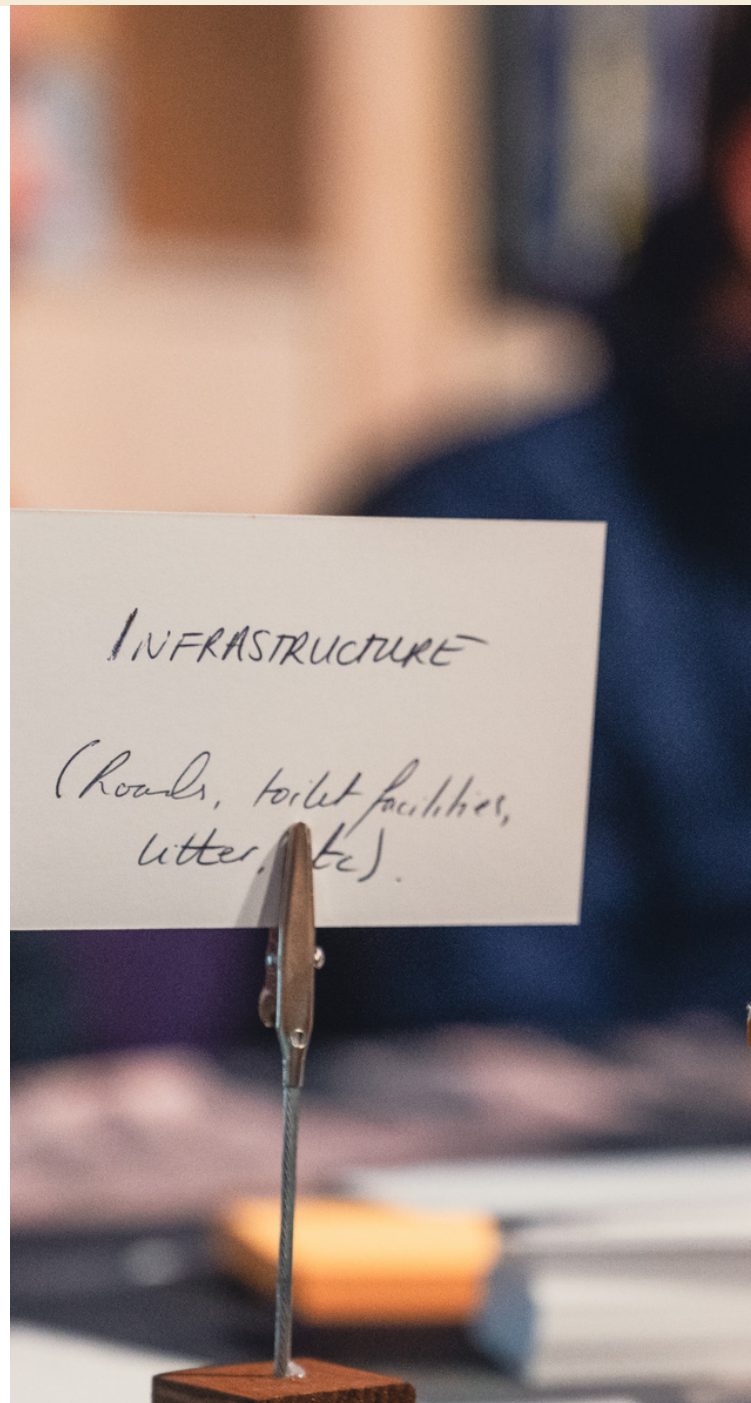 INFRASTRUCTURE
(Roads, toilet facilities,
litter, etc).